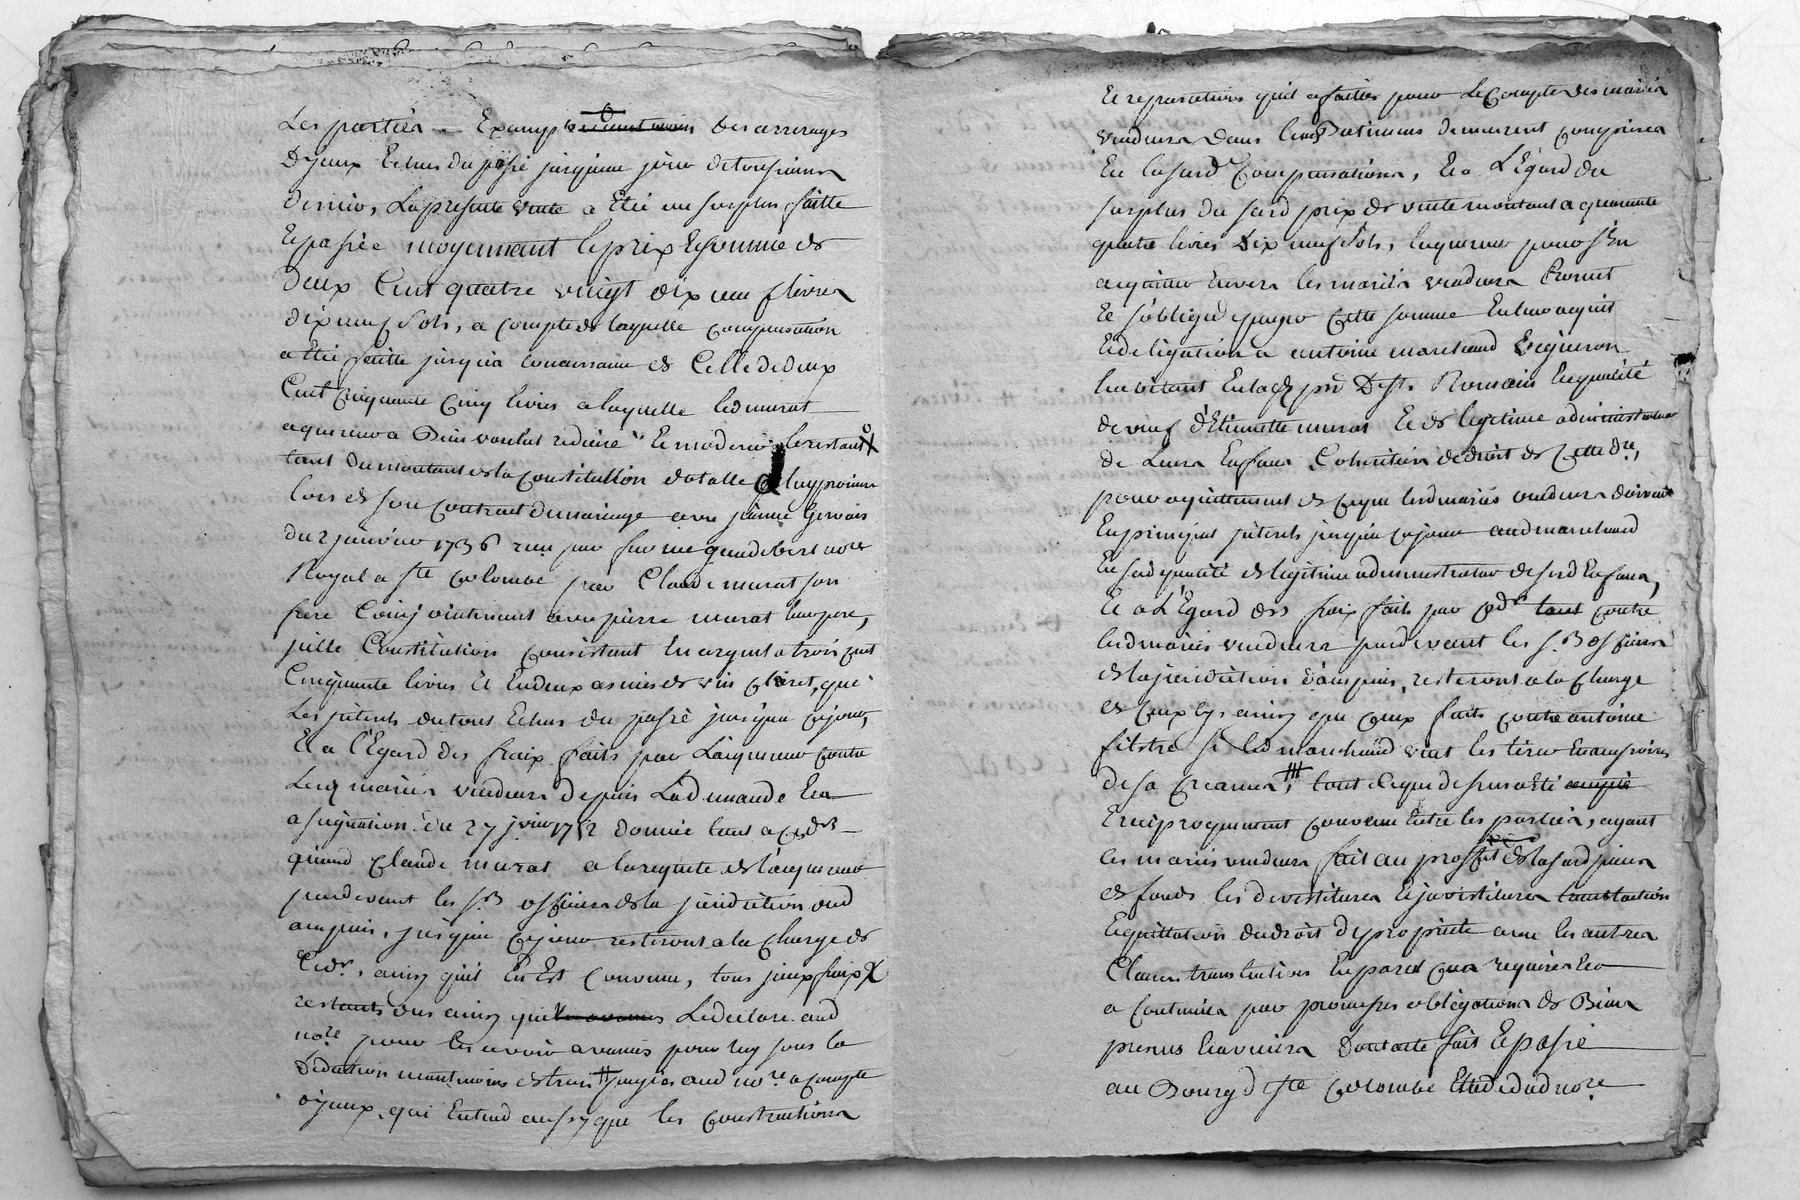 Les partiés Exampt des arrerages
D'yceux Echus du passé jusqu'au jour de toussaina
dernier, La presente vente a Eté au surplus faitte
Et passée moyennant le prix Et somme de
Deux Cent quatre vingt dix neuf livres
dix neuf sols, a compte de laquelle compensation
a Eté faitte jusqu'a concurrance de Celle de deux
Cent Cinquante Cinq livres a laquelle led murat
aquereur a Bien voulut reduire Et moderer le restant
tant du montant de la Constitution dotalle a luy promise
lors de son Contract de mariage avec jeanne Gervais
du 2 janvier 1736 reçu par
Royal a Ste Colombe par Claude murat son
frere Conjointement avec pierre murat leur pere,
jcelle Constitution Consistant En argent a trois Cent
Cinquante livres Et En deux asnées de vin Clairet, que
Les jnterets du tout Echus du passé jusqua ce jour,
Et a l'Egard des fraix faits par L'aquereur contre
Lesd mariés vendeurs depuis La demande En
assignation du 27 1752 donnée tant a
quaud Claude murat a la requete de l'aquereur
pardevant les Srs officiers de la jurisdiction dud
ampuis, jusqu'a ce jour resteront a la Charge de
Ced, ainsy qu'il En Est Convenu, tous jceux fraix
restants dus ainsy que Le declare aud
nore pour les avoir avancés pour luy sous la
Deduction neantmoins de trois payées aud nore a Compte
d'yceux, qui Entend aussy que les Constructions
Et reparations quil a faittes pour Le Compte des mariés
vendeurs dans les Batiments demeurent Comprises
En lasusd Compensation, Et a L'Egard du
surplus du susd prix de vente montant a quarante
quatre livres Dix neuf sols, laquereur pour s'En
aquitter Envers les mariés vendeurs Promet
Et s'oblige de payer Cette somme En leur aquit
Et deligation a antoine marchand Vigneron
habitant En lad psse De St Romain En qualité
de veuf d'Etiennette murat Et de legitime administrateur
de Leurs Enfans Coheritiers de droit de Cette dre,
pour aquittement de Ce que lesd mariés vendeurs doivent
En principal jnterets jusqu'a ce jour aud marchand
En sad qualité de legitime administrateur de sesd Enfans,
Et a L'Egard des fraix faits par tant contre
lesd mariés vendeurs pardevant les Srs officiers
de la jurisdiction d'ampuis, resteront a la Charge
de ceux cy, ainsy que ceux faits contre antoine
si led marchand veut les tirer
de sa Creance, tout Ce que dessus a Eté
reciproquement convenu Entre les parties, ayant
les mariés vendeurs fait au proffit de lasusd piece
de fonds les devestitures Et jnvestitures
Et quittation du droit de proprieté avec les autres
Clauses translatives En pareil Cas requises Et
a Coutumées par promesses obligations de Biens
presens Et avenirs Dont acte fait Et passé
au Bourg de Ste Colombe Etude dud nore